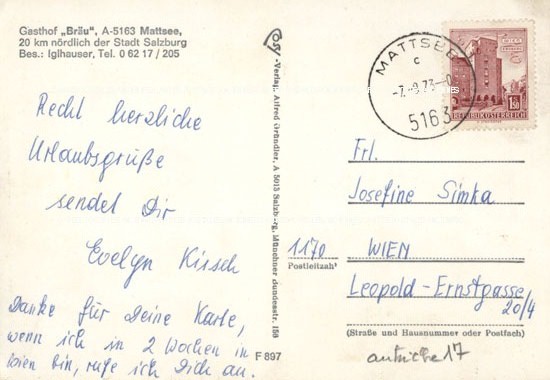 Gasthof „Bräu", A-5163 Mattsee,
20 km nördlich der Stadt Salzburg
Bes.: Iglhauser, Tel. 0 62 17 / 205
Recht herzliche
Urlaubsgrüße
sendet Dir
Evelyn Kirsch
Danke für Deine Karte,
wenn ich in 2 Wochen in
Wien bin, rufe ich Dich an.
F 897
Cosy-Verlag Alfred Gründler, A 5013 Salzburg, Münchner Bundesstr. 156
MATTSEE
c
5163
1.50
REPUBLIK ÖSTERREICH
Frl.
Josefine Simka
1170 WIEN
Postleitzahl
Leopold-Ernstgasse
20/4
(Straße und Hausnummer oder Postfach)
autriche 17